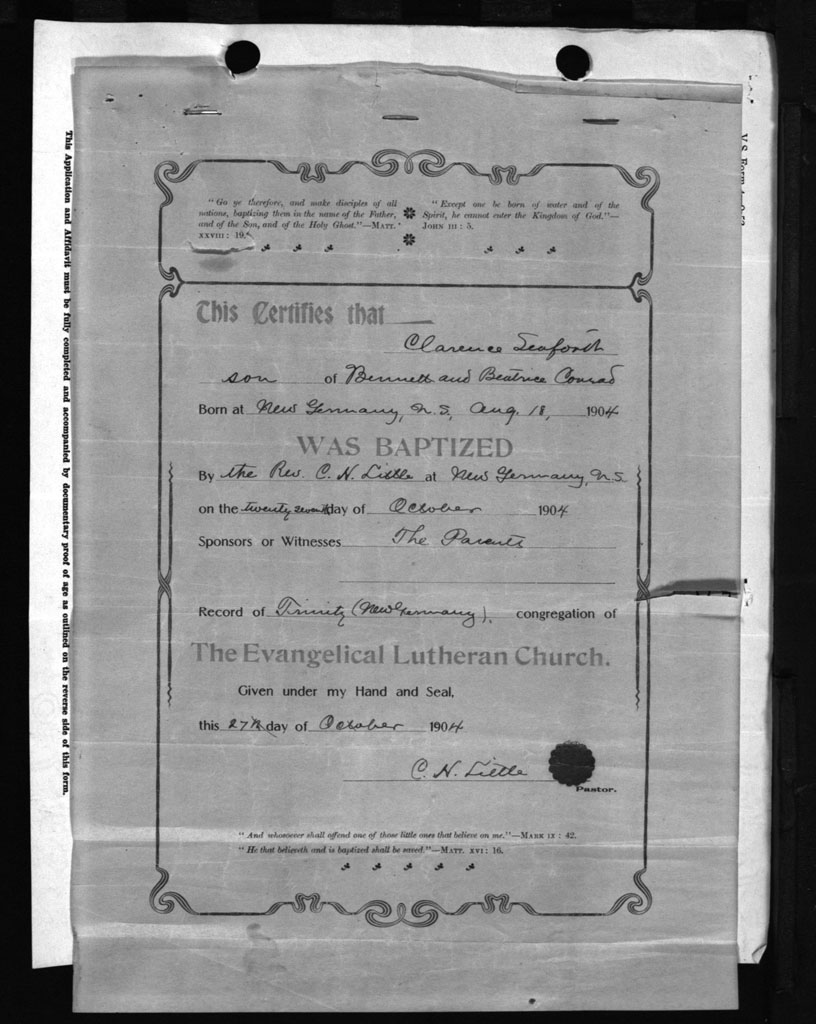 "Go ye therefore, and make disciples of all
nations, baptizing them in the name of the Father,
and of the Son, and of the Holy Ghost."—MATT.
XXVIII: 19.
"Except one be born of water and of the
Spirit, he cannot enter the Kingdom of God."—
JOHN III: 5.
This Certifies that
Clarence Seaforth
son of Bennett and Beatrice Conrad
Born at New Germany, N.S., Aug. 18, 1904
WAS BAPTIZED
By the Rev. C. N. Little at New Germany, N.S.
on the twenty seventh day of October 1904
Sponsors or Witnesses The Parents
Record of Trinity (New Germany). congregation of
The Evangelical Lutheran Church.
Given under my Hand and Seal,
this 27th day of October 1904
C. N. Little
Pastor.
"And whosoever shall offend one of those little ones that believe on me."—MARK IX: 42.
"He that believeth and is baptized shall be saved."—MATT. XVI: 16.
This Application and Affidavit must be fully completed and accompanied by documentary proof of age as outlined on the reverse side of this form.
V.S. Form